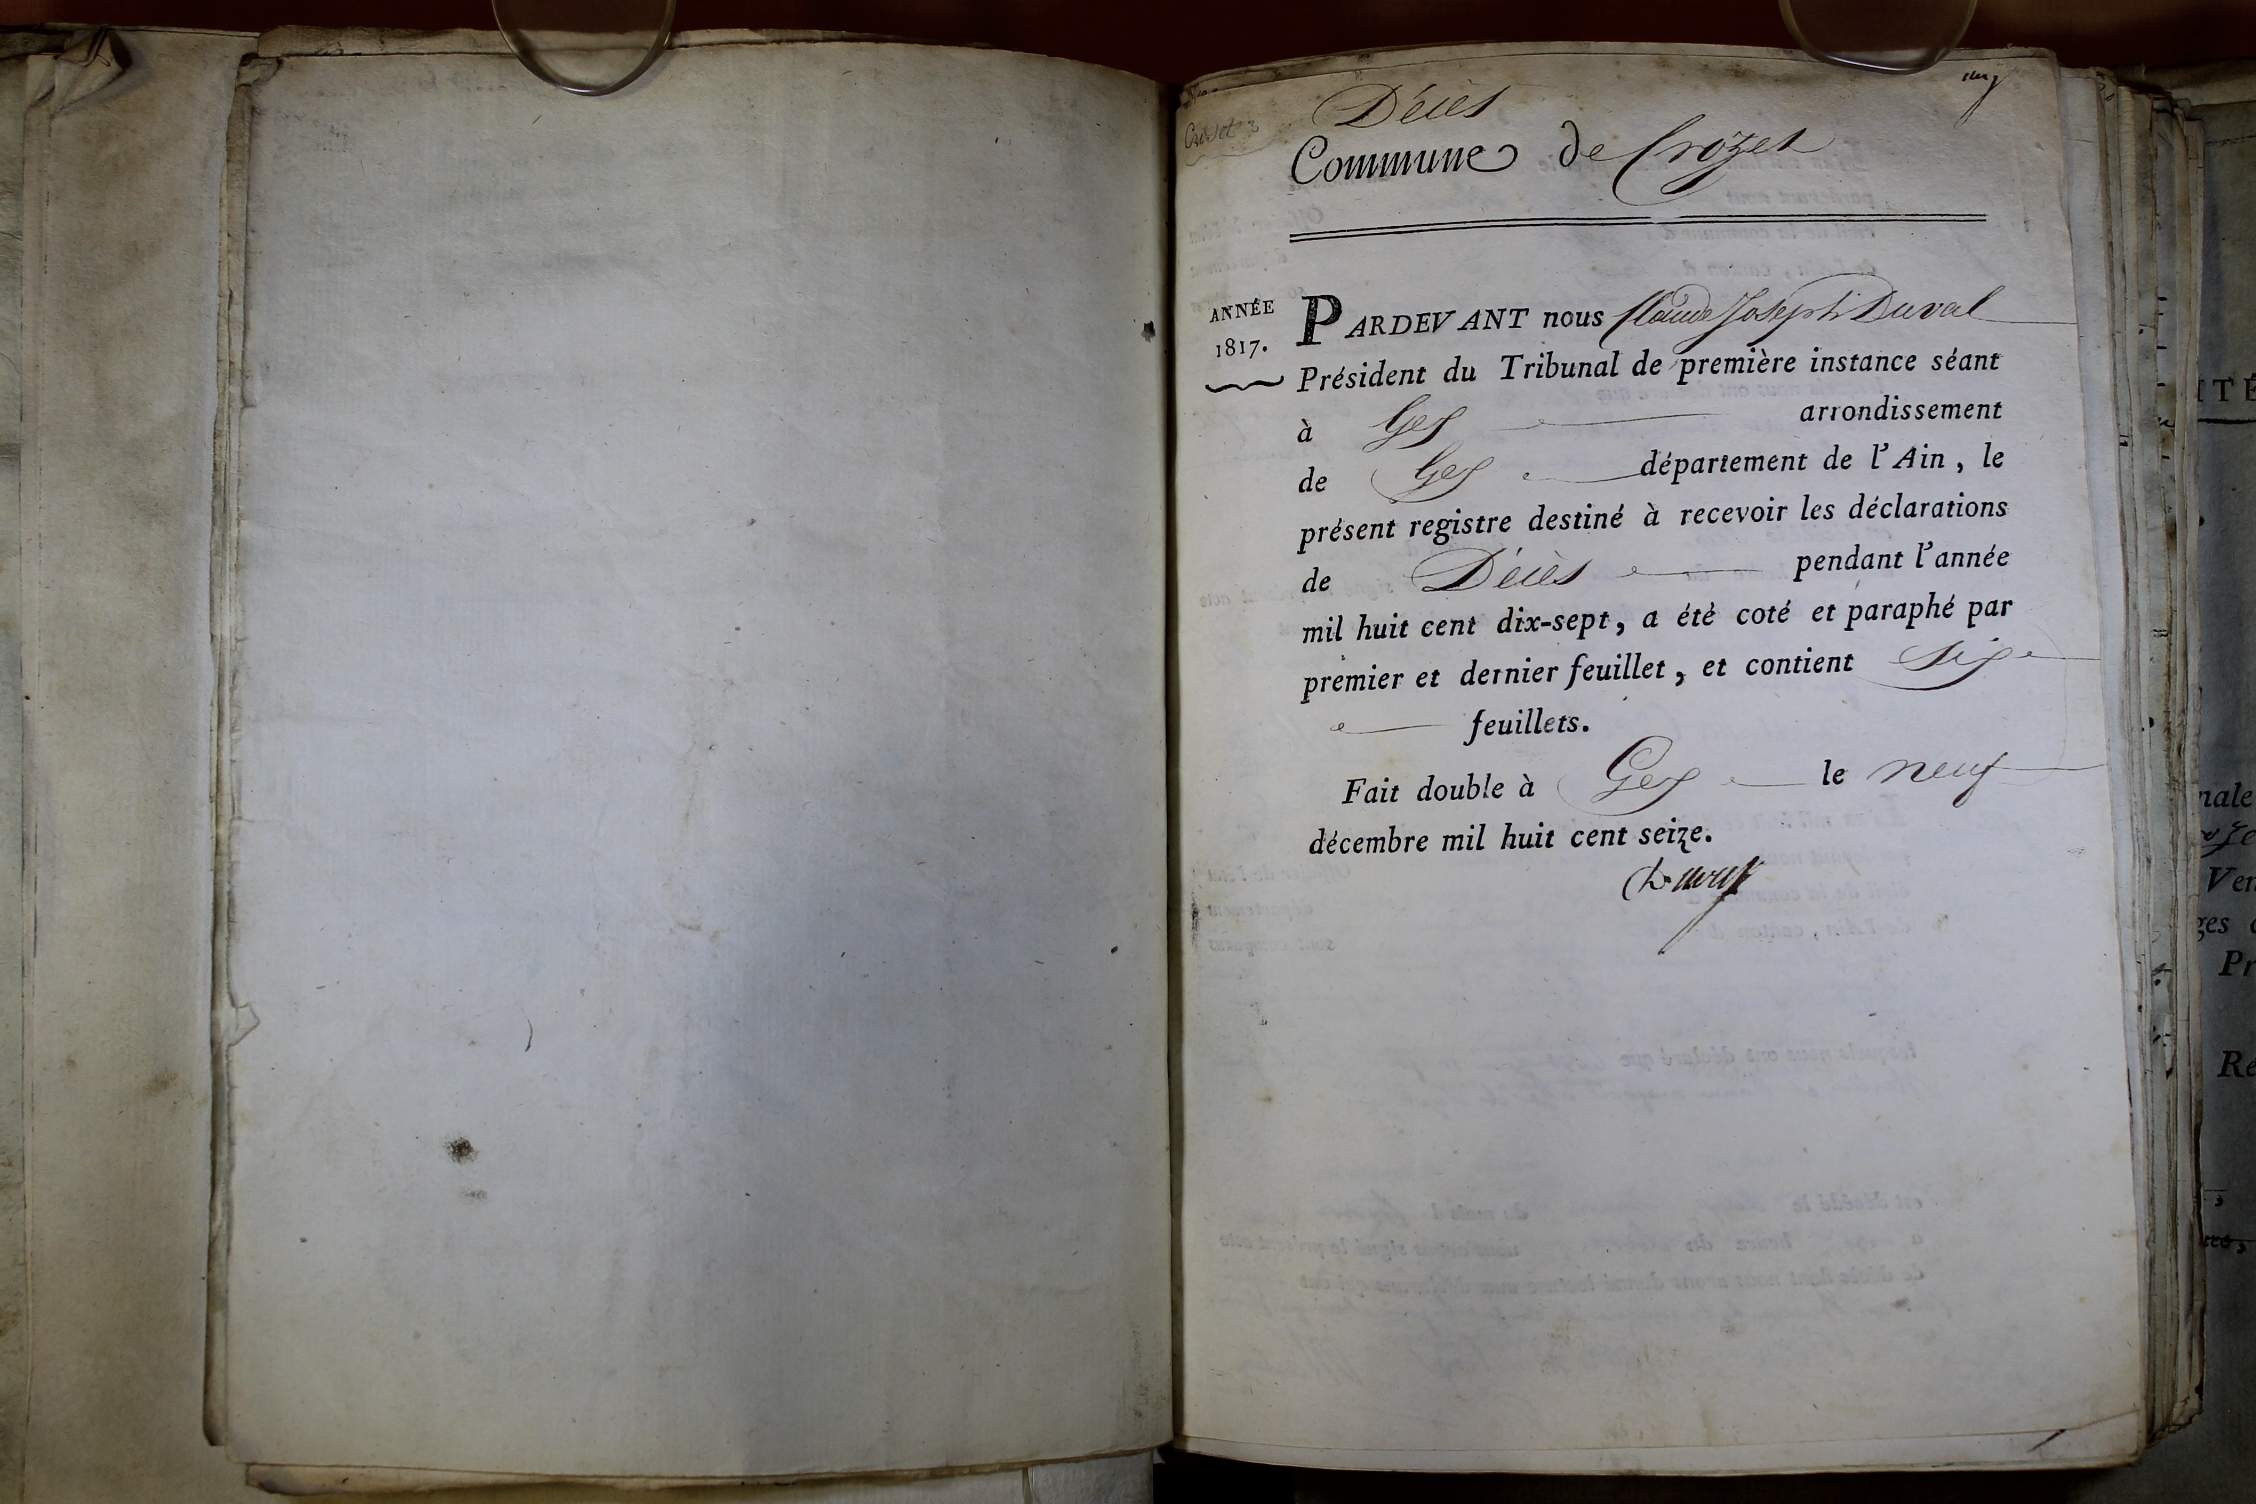 Décès
Crozet 3
Commune de Crozet
ANNÉE
1817.
PARDEVANT nous Claude Joseph Duval
Président du Tribunal de première instance séant
à Gex arrondissement
de Gex département de l'Ain, le
présent registre destiné à recevoir les déclarations
de Décès pendant l'année
mil huit cent dix-sept, a été coté et paraphé par
premier et dernier feuillet, et contient six
feuillets.
Fait double à Gex le neuf
décembre mil huit cent seize.
ITÉ
nale
Ven
ges
Pr
Re